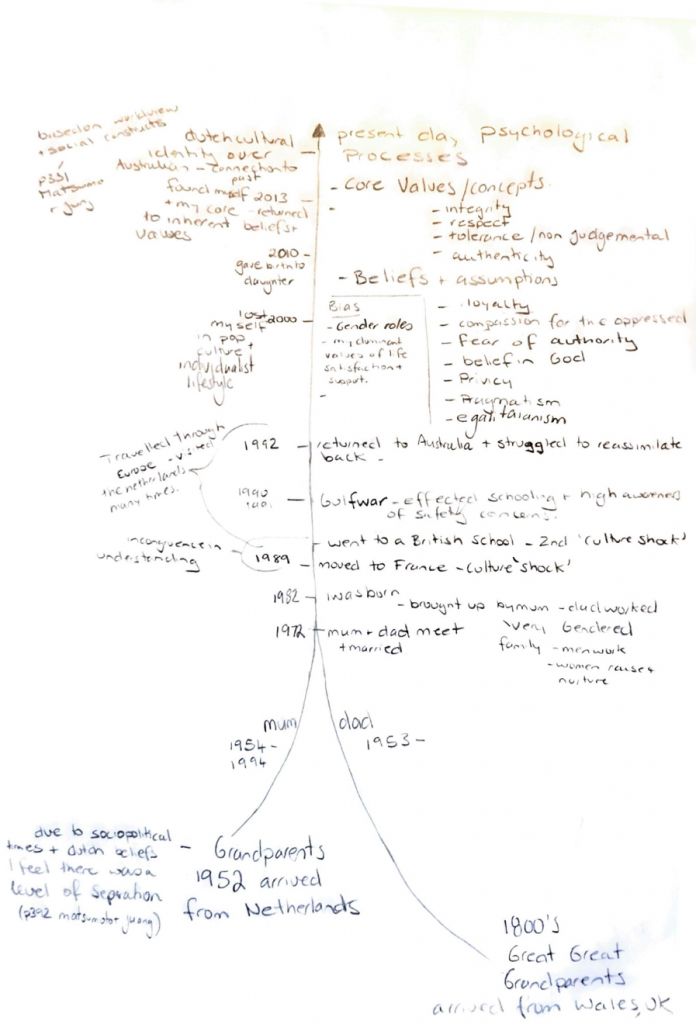 based on worldview
+ social constructs
p331
Matsumo
+ Juang
dutch cultural
identity over
Australian - connection to
past
found myself 2013
+ my core - returned
to inherent beliefs +
values
2010 -
gave birth to
daughter
lost 2000
myself
in pop
culture +
individualist
lifestyle
present day psychological
Processes
- Core Values/concepts
- integrity
- respect
- tolerance/non judgemental
- authenticity
- Beliefs + assumptions
Bias
- Gender roles
- my dominant
values of life
satisfaction +
support.
-
- loyalty
- compassion for the oppressed
- Fear of authority
- belief in God
- Privicy
- Pragmatism
- egalitaianism
Travelled through
Europe - visited
the netherlands
many times.
1992 - returned to Australia + struggled to reassimilate
back -
1990
1991
Gulfwar - effected schooling + high awarness
of safety concerns.
- went to a British school - 2nd 'culture shock'
incongruence in
understanding
1989 - moved to France - culture 'shock'
1982 - I was born
- brought up by mum - dad worked
Very Gendered
family - men work
- women raise +
nurture
1972 - mum + dad meet
+ married
mum
1954 -
1994
dad
1953 -
due to sociopolitical
times + dutch beliefs
I feel there was a
level of sepration
(p392 matsumoto + juang)
- Grandparents
1952 arrived
from Netherlands
1800's
Great Great
Grandparents
arrived from Wales, UK